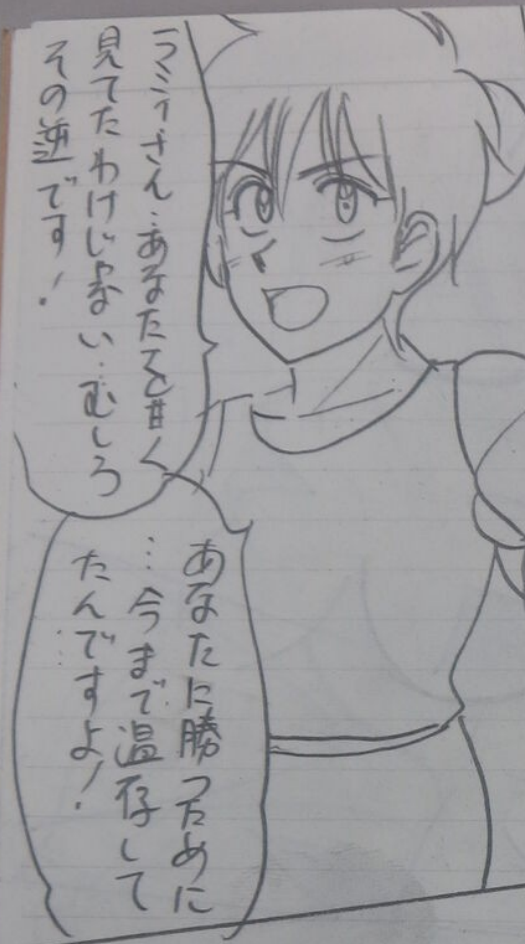 ラミィさん…あなたを甘く
見てたわけじゃない…むしろ
その逆です！
あなたに勝つために
…今まで温存して
たんですよ！